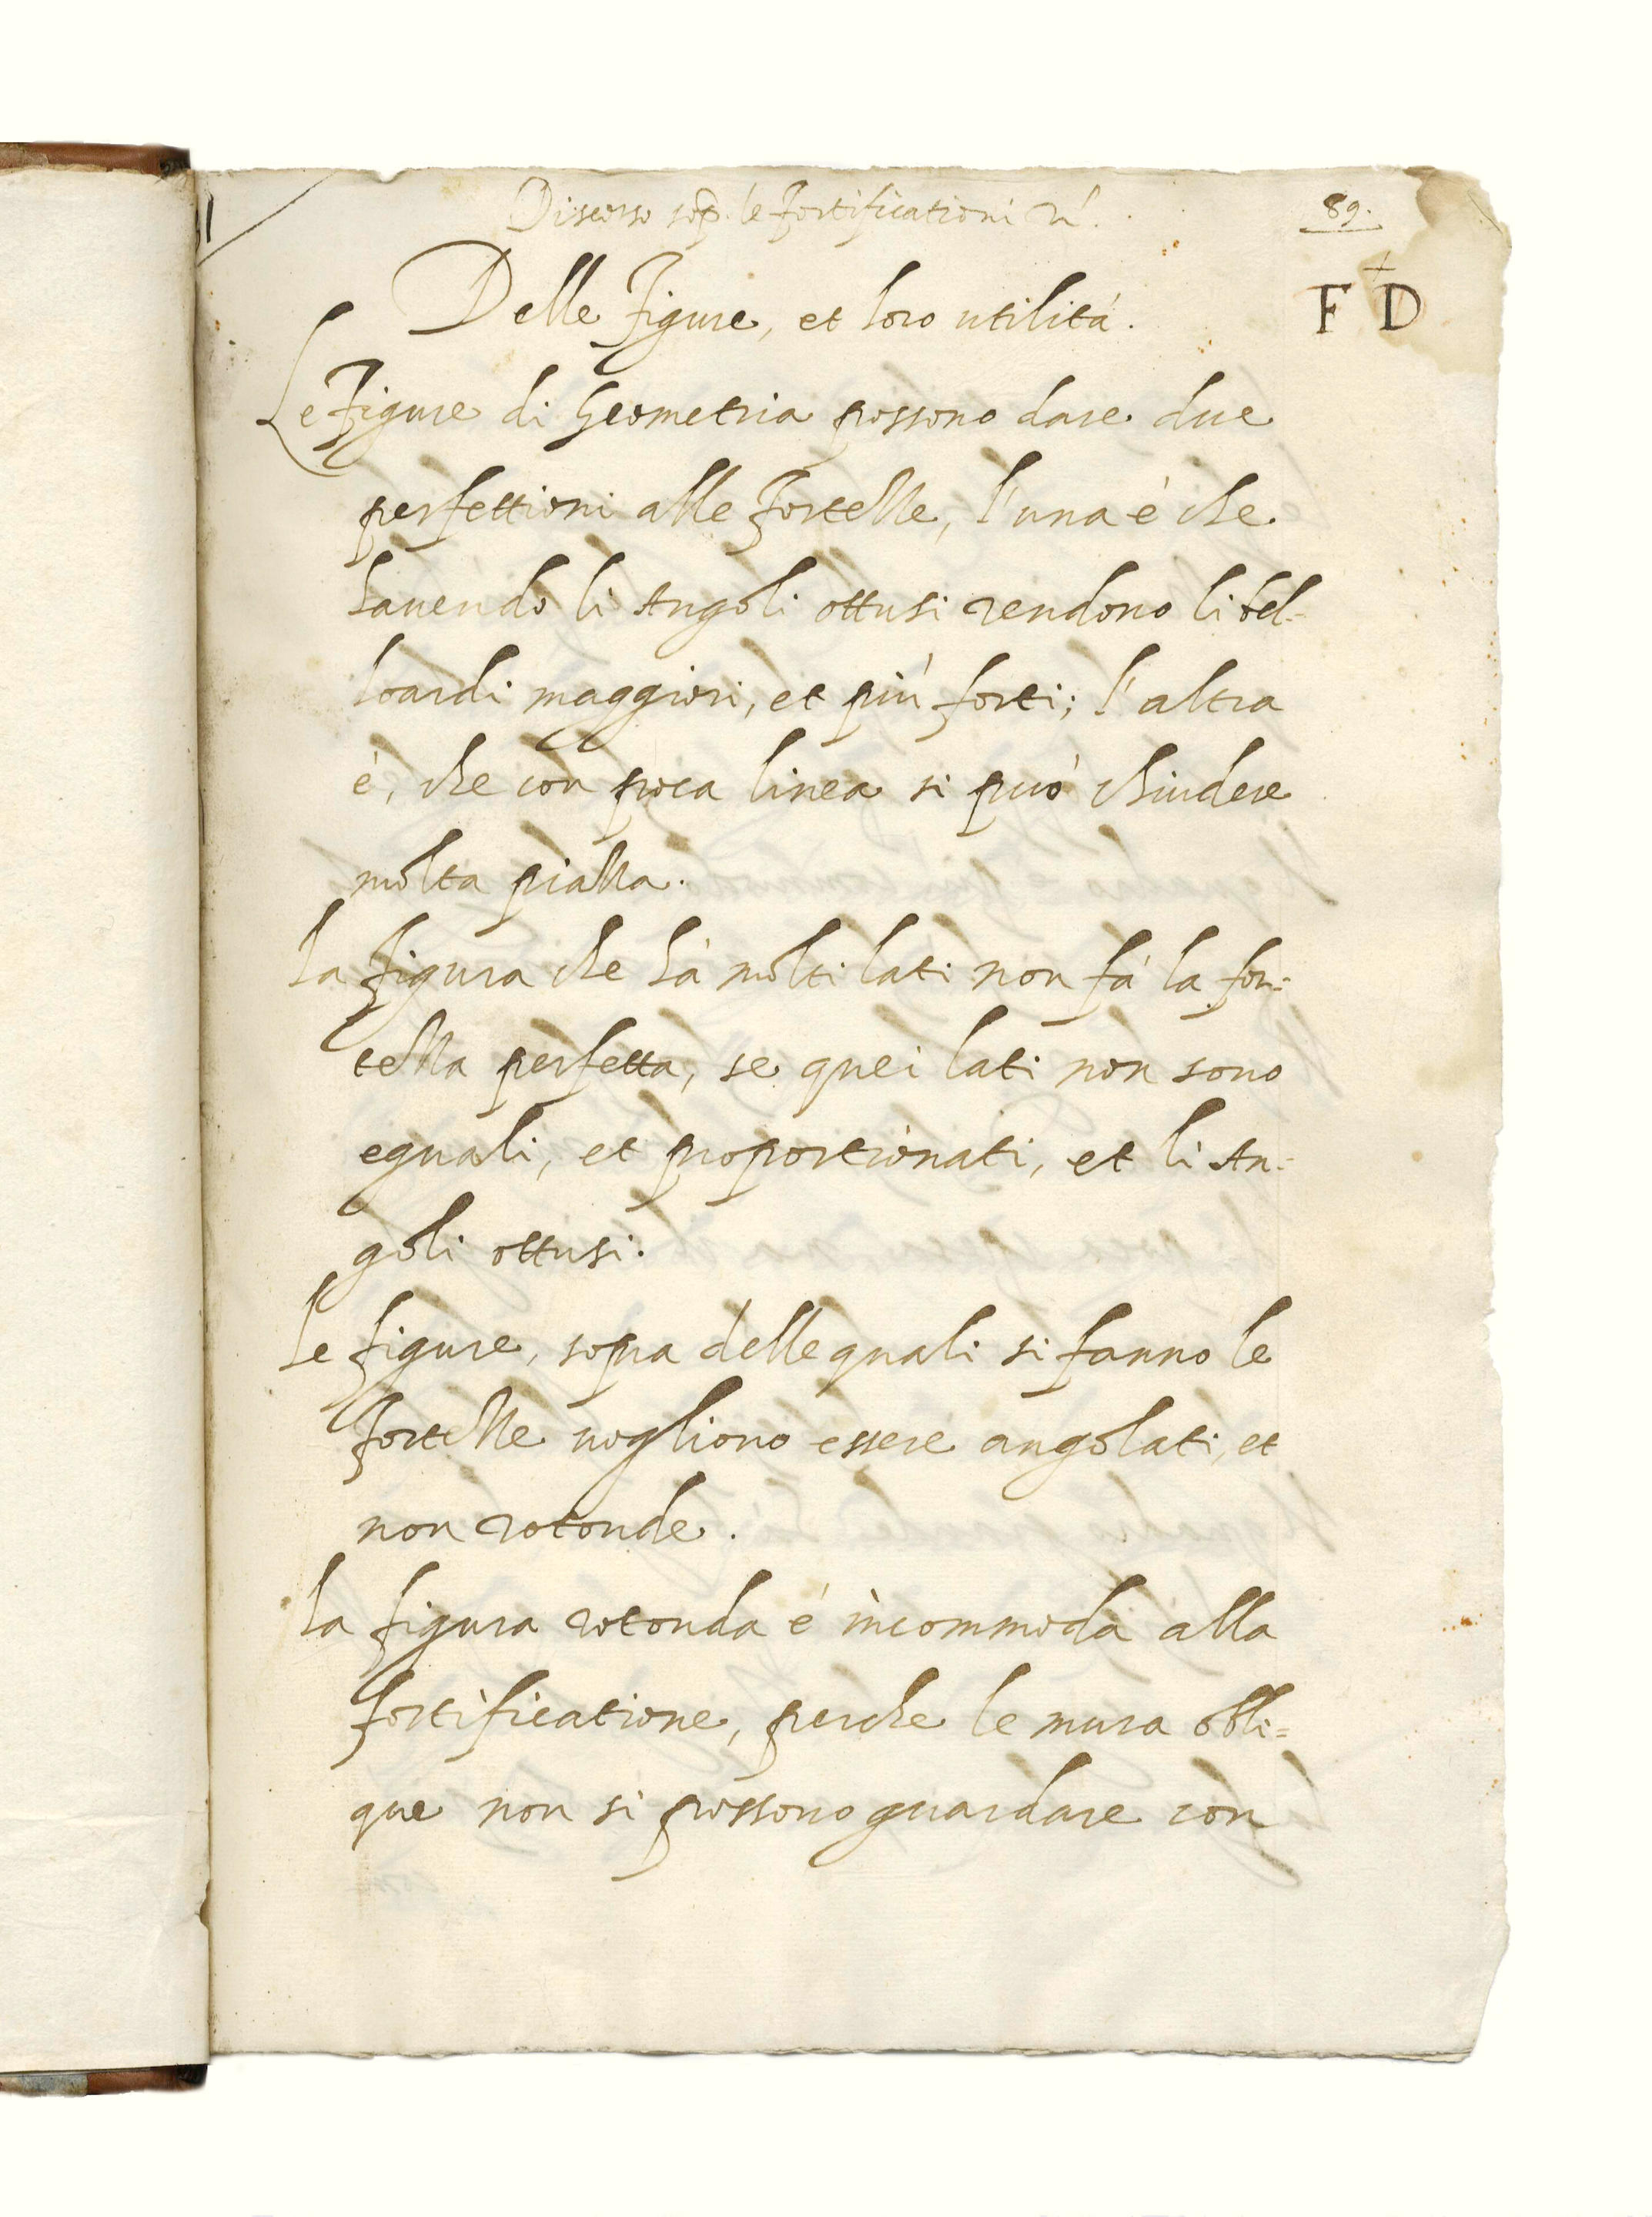 Discorso sop. le fortificationi
89.
F + D
Delle Figure, et loro utilità.
Le Figure di Geometria possono dare due
perfettioni alle Fortezze, l'una è che
hauendo li Angoli ottusi rendono li bel=
loardi maggiori, et più forti; l'altra
è, che con poca linea si può chiudere
molta piazza.
La figura che hà molti lati non fà la for=
tezza perfetta, se quei lati non sono
eguali, et proportionati, et li An=
goli ottusi.
Le figure, sopra delle quali si fanno le
Fortezze uogliono essere angolati, et
non rotonde.
La figura rotonda è incommoda alla
Fortificatione, perche le mura obli=
que non si possono guardare con